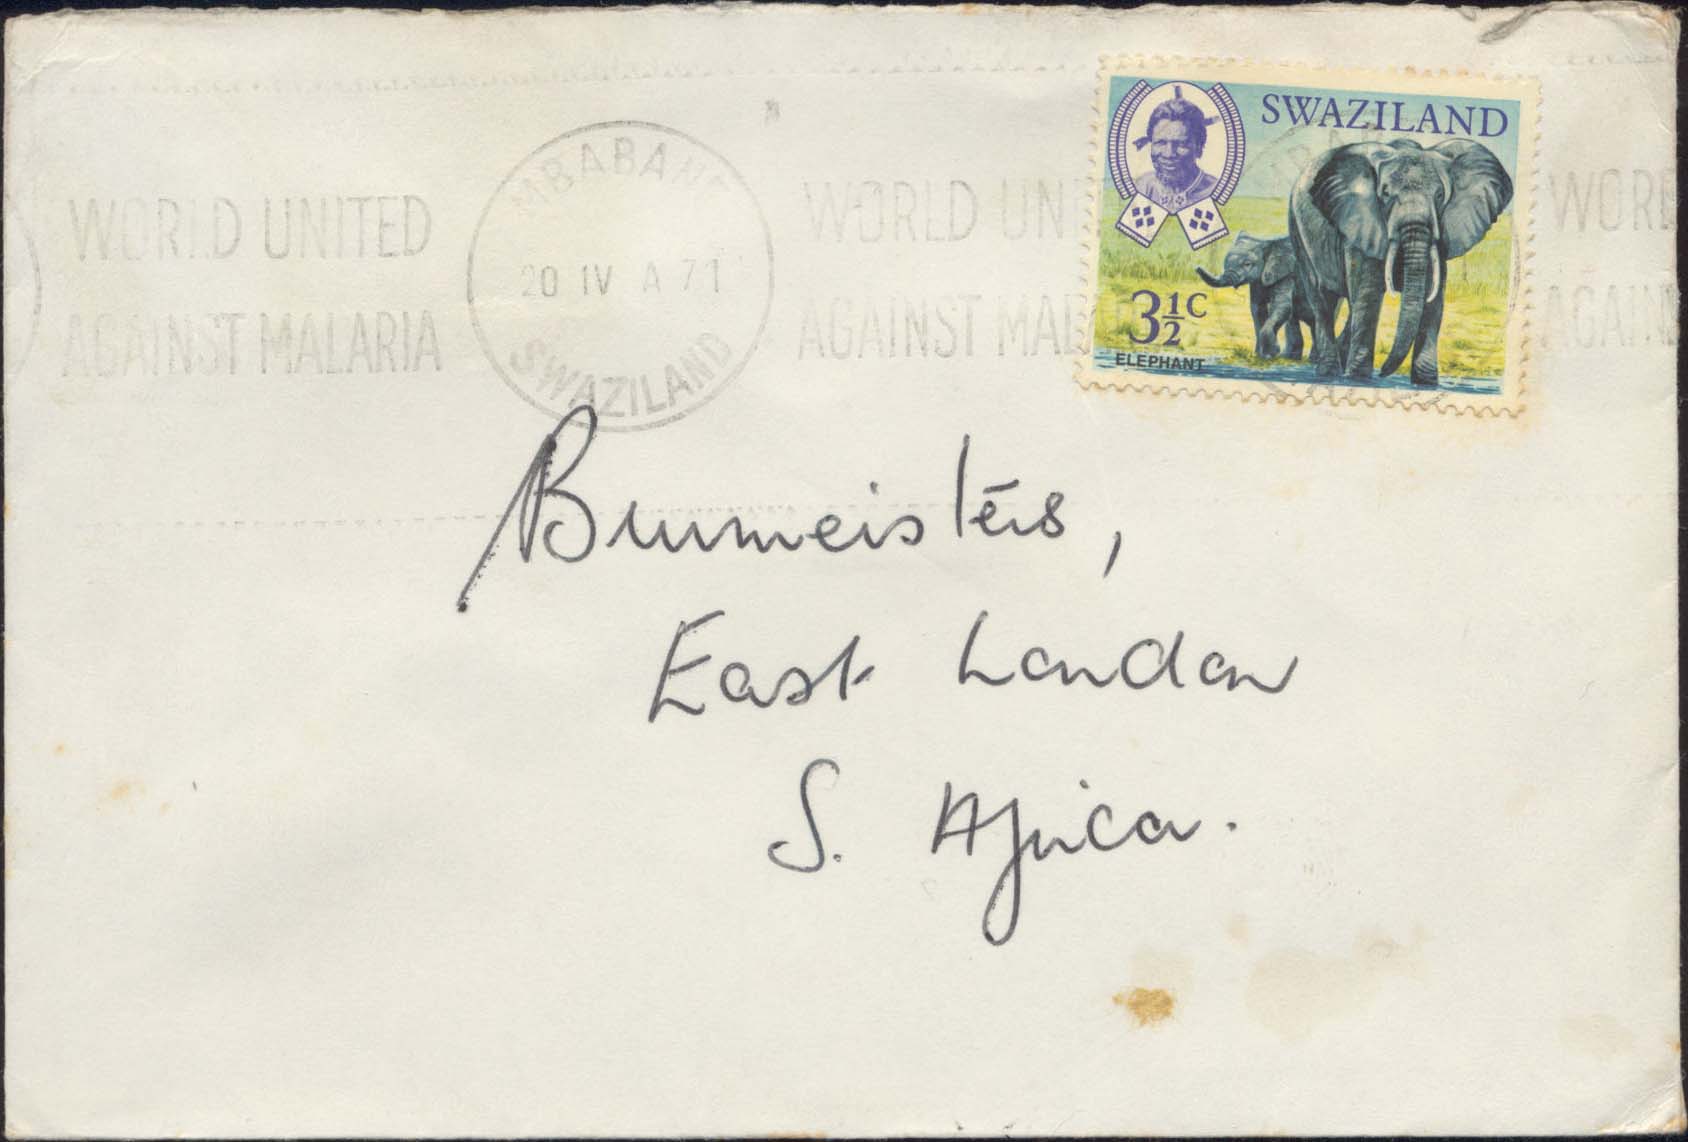 WORLD UNITED
AGAINST MALARIA
MBABANE
20 IV A 71
SWAZILAND
WORLD UN
AGAINST MAL
SWAZILAND
3½c
ELEPHANT
WORL
AGAIN
Burmeisters,
East London
S. Africa.